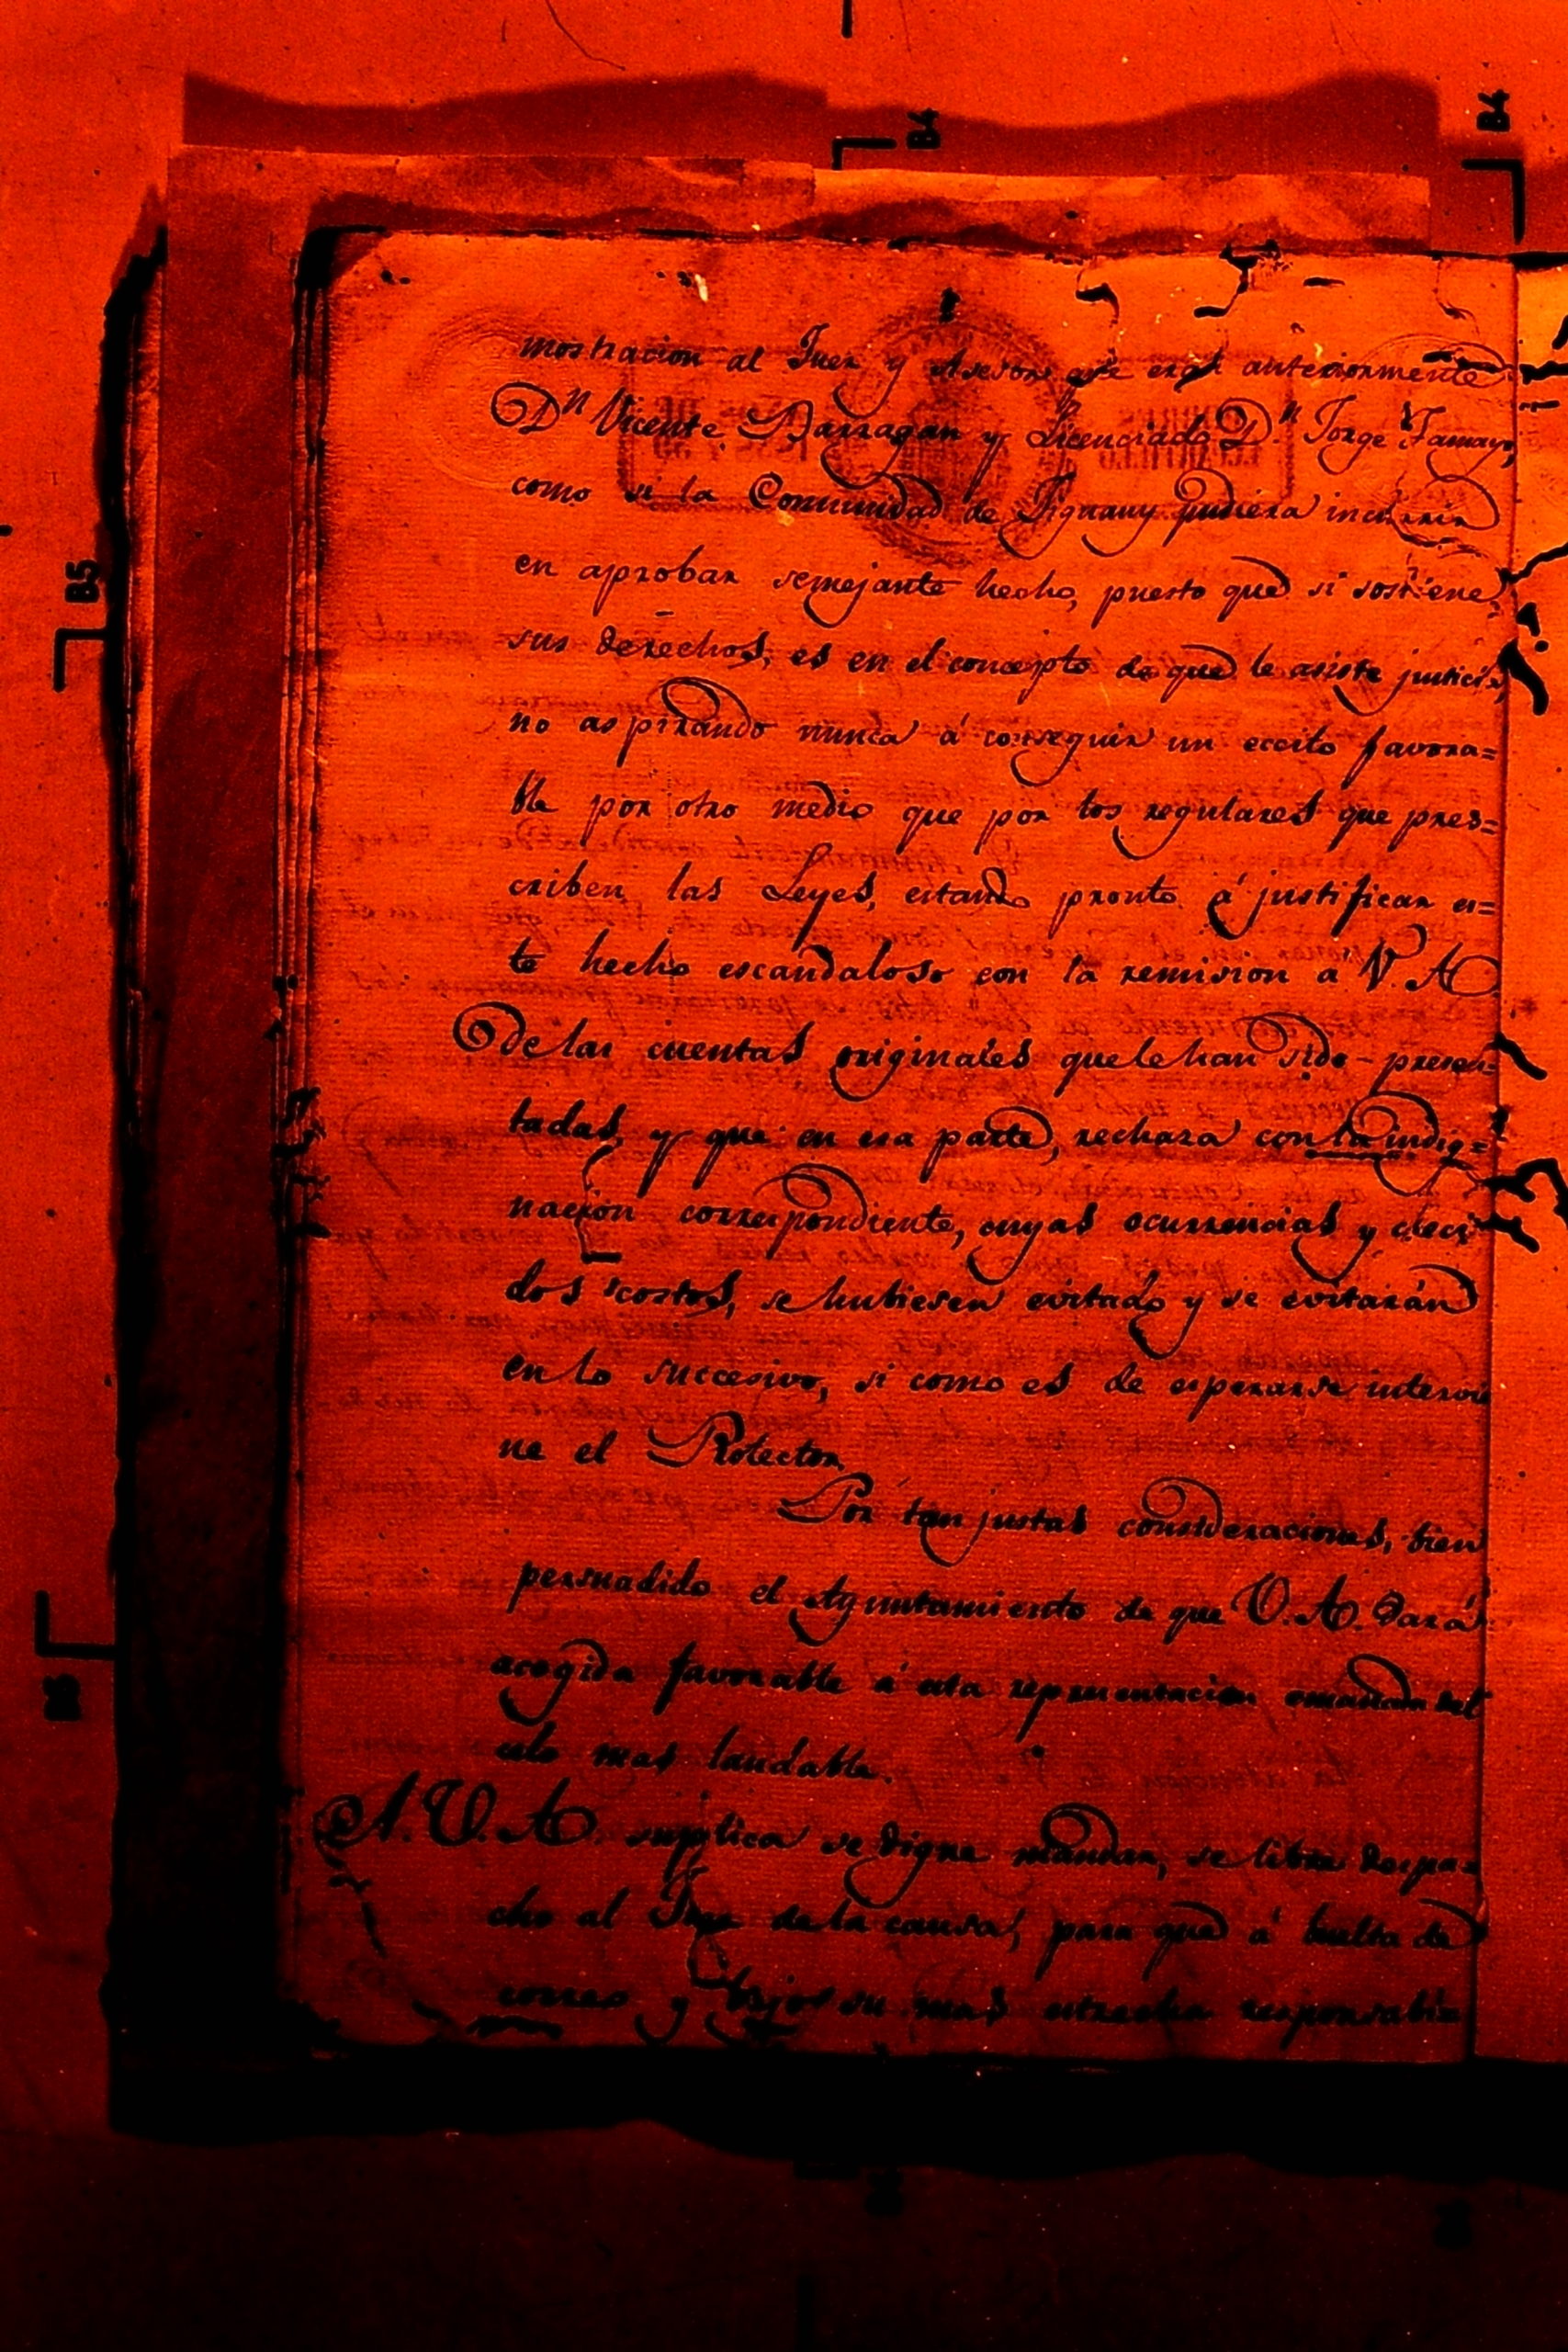 mostracion al Juez y Asesor que eran anteriormente
Dn Vicente Barragan y Licenciado Dn Jorge Tamayo,
como si la Comunidad de pudiera incurrir
en aprobar semejante hecho, puesto que si sostiene
sus derechos, es en el concepto de que le asiste justicia,
no aspirando nunca á conseguir un eccito favora=
ble por otro medio que por los regulares que pres=
criben las Leyes, estando pronto á justificar es=
te hecho escandaloso con la remision a V. A.
De las cuentas originales que le han sido presen=
tadas, y que en esa parte, rechaza con la indig=
nacion correspondiente, cuyas ocurrencias y creci
dos costos, se hubiesen evitado y se evitarán
en lo succesivo, si como es de esperarse intervie
ne el Protector.
Por tan justas consideraciones, bien
persuadido el Ayuntamiento de que V. A. dará
acogida favorable á esta representacion emanada del
celo mas laudable.
A. V. A. suplica se digne mandar, se libre despa=
cho al Juez de la causa, para que á buelta de
correo y bajo su mas estrecha responsabili=
B4
B4
B5